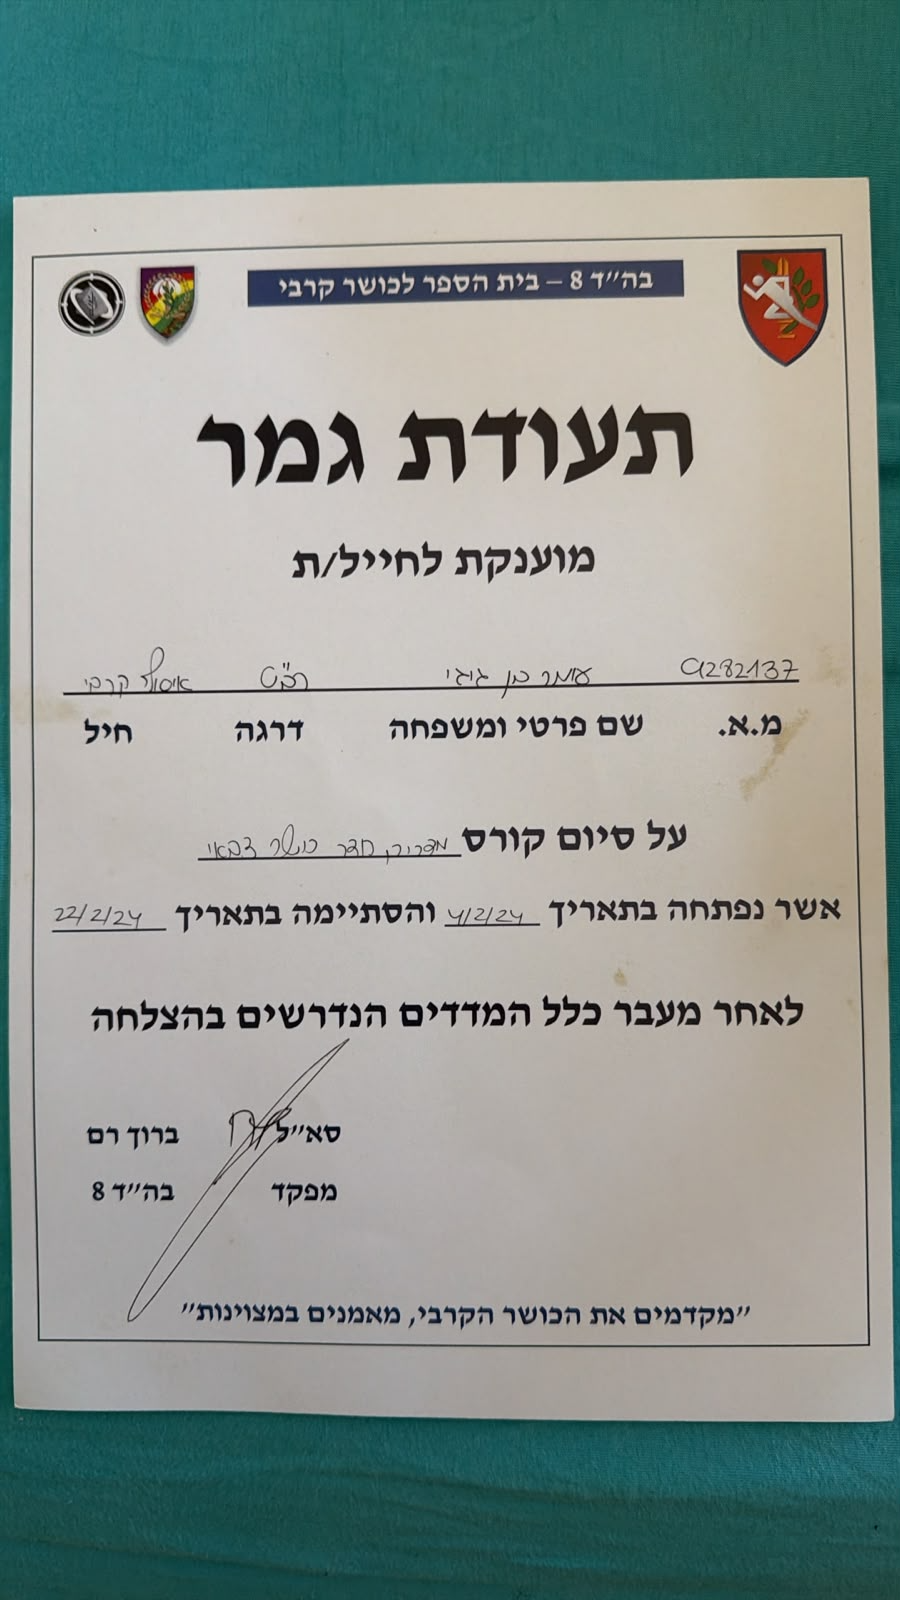 בה״ד 8 – בית הספר לכושר קרבי
תעודת גמר
מוענקת לחייל/ת
9282137 עומר בן גיגי רב"ט איסוף קרבי
מ.א. שם פרטי ומשפחה דרגה חיל
על סיום קורס מדריך חדר כושר צבאי
אשר נפתחה בתאריך 4/2/24 והסתיימה בתאריך 22/2/24
לאחר מעבר כלל המדדים הנדרשים בהצלחה
סא״ל ברוך רם
מפקד בה״ד 8
״מקדמים את הכושר הקרבי, מאמנים במצוינות״